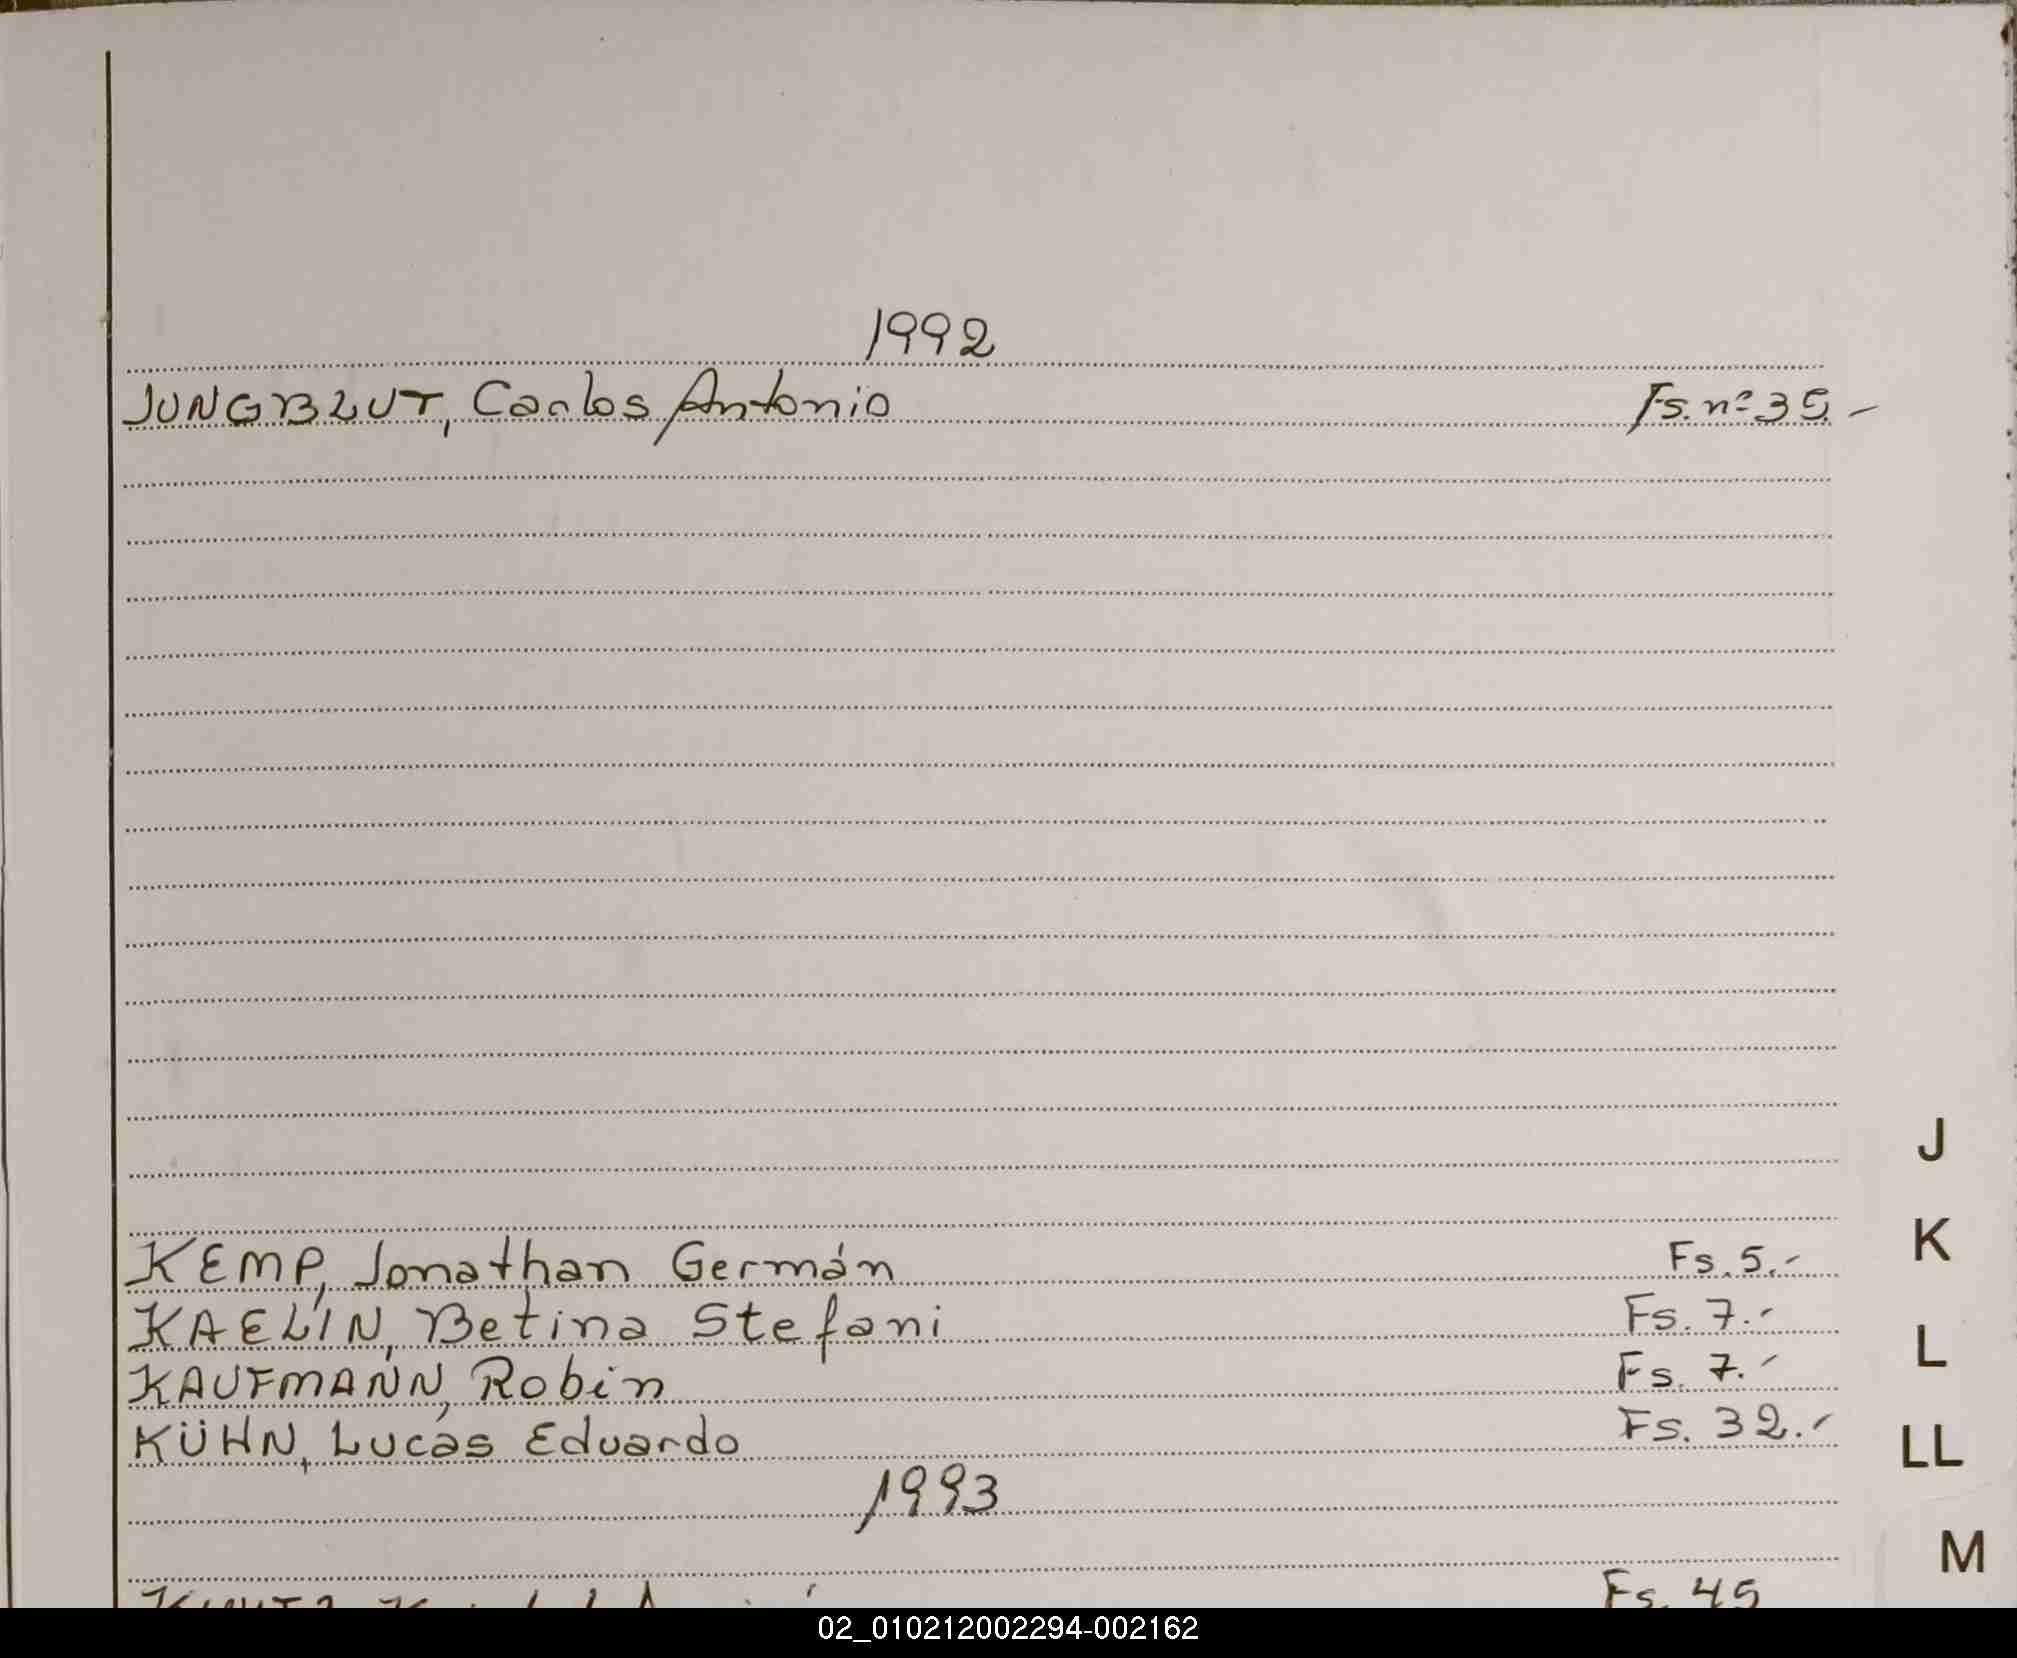 1992
JUNGBLUT, Carlos Antonio Fs. nº 35.-
J
KEMP, Jonathan Germán Fs. 5.-
K
KAELIN, Betina Stefani Fs. 7.-
L
KAUFMANN, Robin Fs. 7.-
KÜHN, Lucas Eduardo Fs. 32.-
LL
1993
M
Fs. 45
02_010212002294-002162